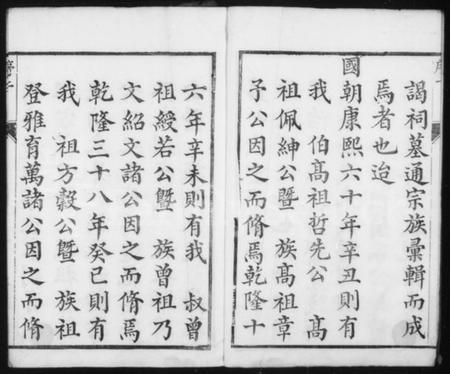 謁祠墓通宗族彙輯而成
焉者也迨
國朝康熙六十年辛丑則有
我 伯髙祖哲先公 髙
祖佩紳公暨 族髙祖章
子公因之而脩焉乾隆十
六年辛未則有我 叔曾
祖綬若公暨 族曾祖乃
文紹文諸公因之而脩焉
乾隆三十八年癸巳則有
我 祖方縠公暨 族祖
登雅育萬諸公因之而脩